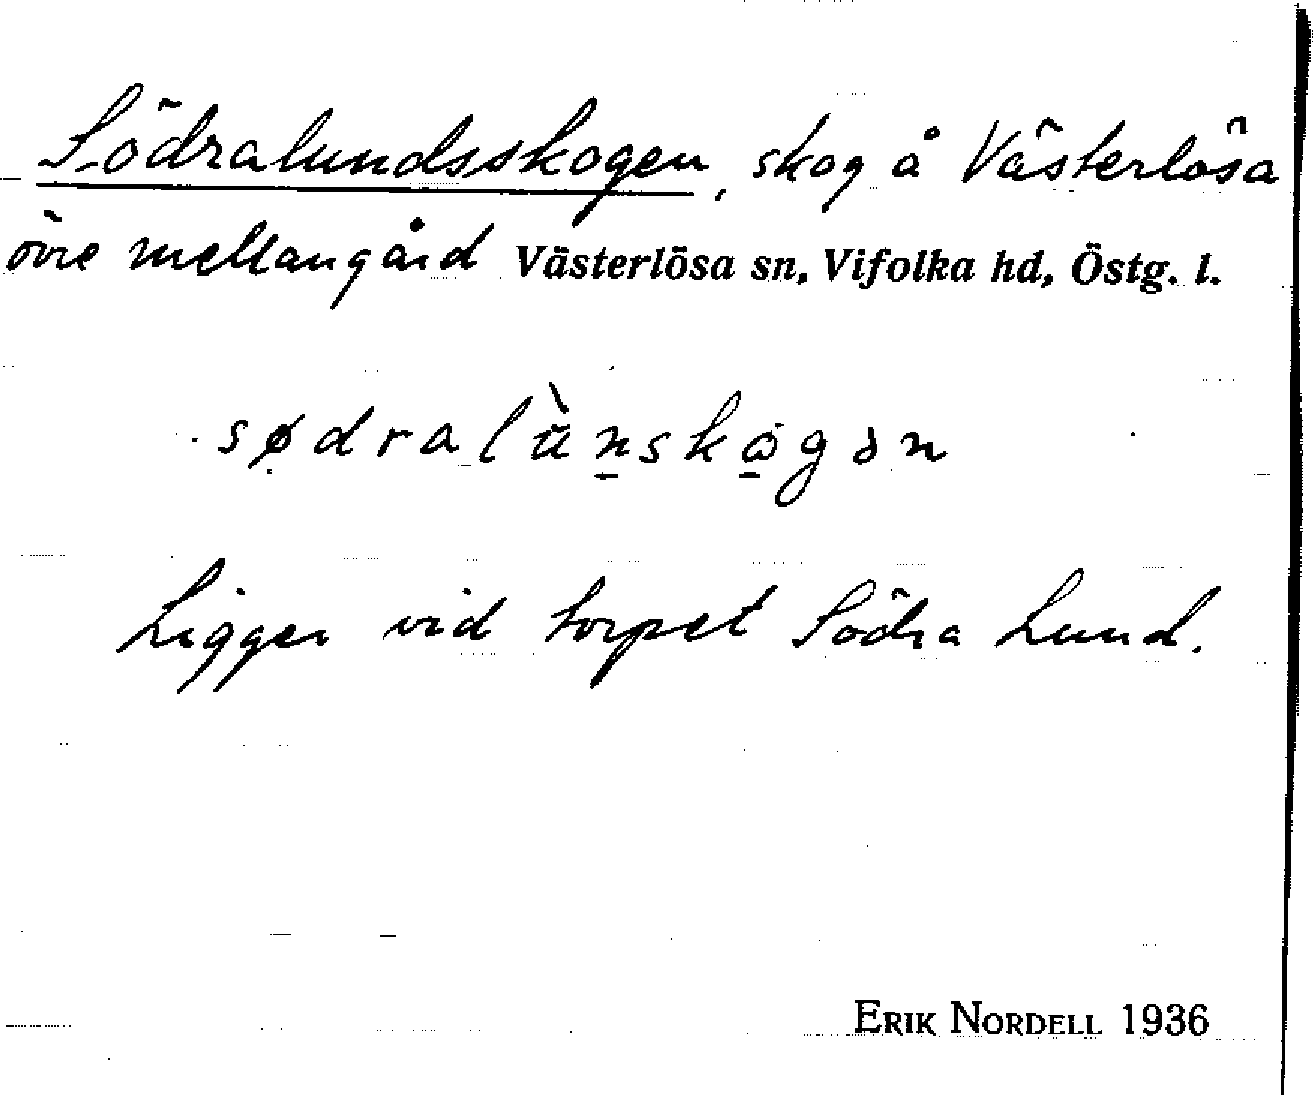 Södralundsskogen, skog å Västerlösa
övre mellangård Västerlösa sn, Vifolka hd, Östg. l.
sø̣dralùn̠skω̠gən
Ligger vid torpet Södra Lund.
ERIK NORDELL 1936